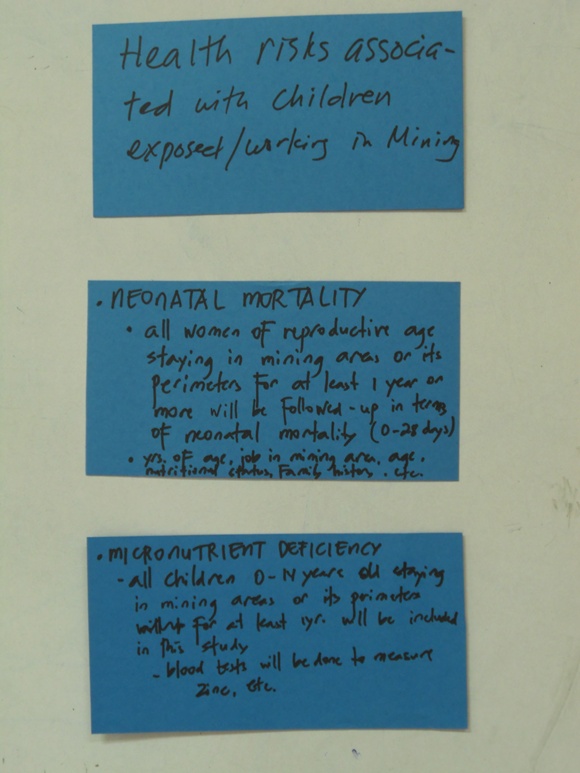 Health risks associa-
ted with Children
exposed/working in Mining
• NEONATAL MORTALITY
• all women of reproductive age
staying in mining areas or its
perimeters for at least 1 year or
more will be followed-up in terms
of neonatal mortality (0-28 days)
• yrs. of age, job in mining area, age,
nutritional status, Family history, etc.
• MICRONUTRIENT DEFICIENCY
- all children 0- years old staying
in mining areas or its perimeters
for at least 1yr. will be included
in this study
- blood tests will be done to measure
Zinc, etc.